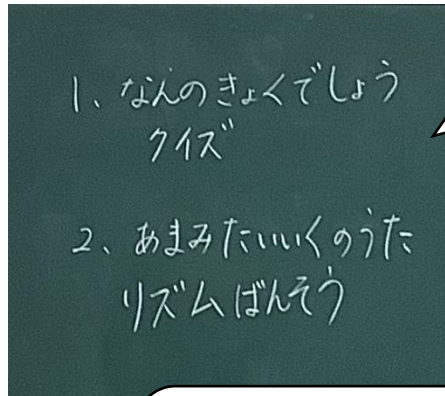 1、なんのきょくでしょう
クイズ
2、あまみたいいくのうた
リズムばんそう